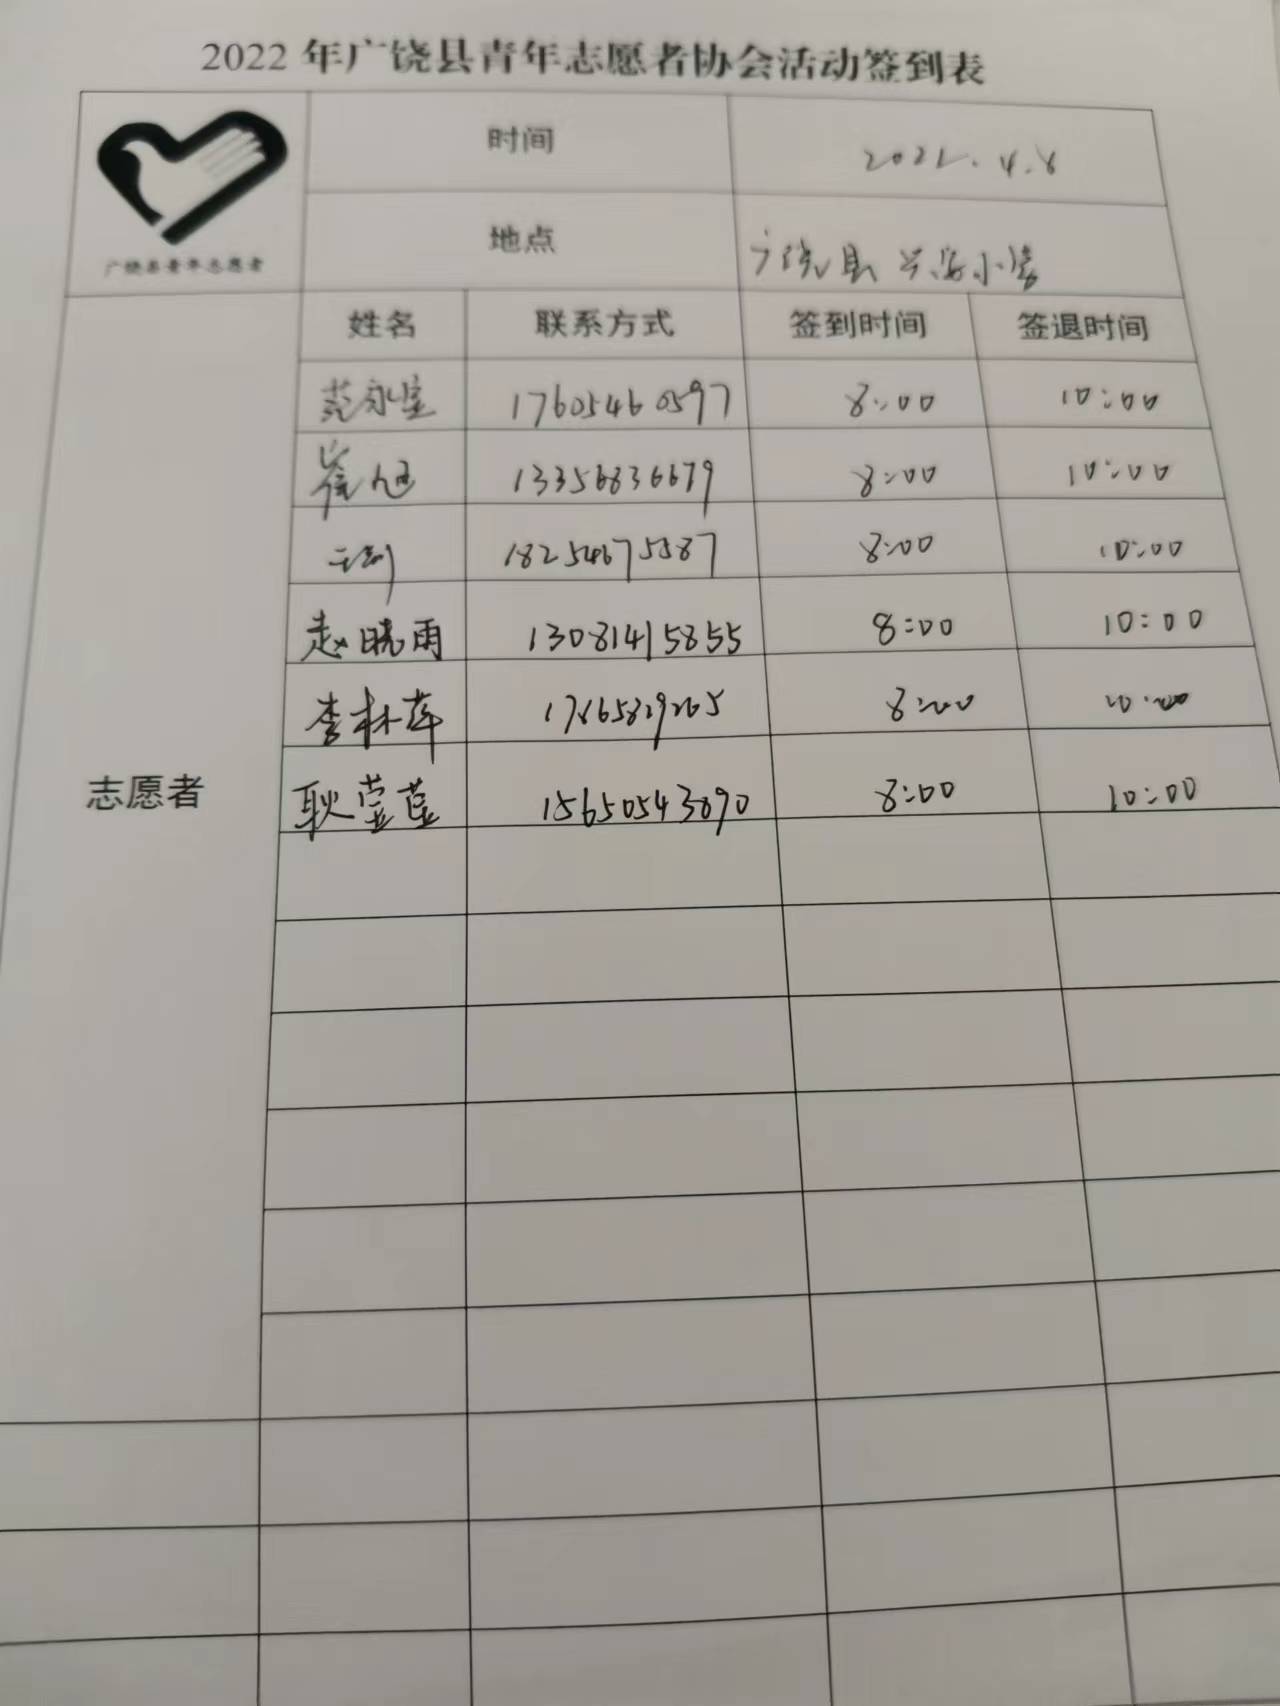 2022年广饶县青年志愿者协会活动签到表
广饶县青年志愿者
时间 2022.4.8
地点 广饶县 小区
志愿者
姓名 联系方式 签到时间 签退时间
范永宝 17605460597 8:00 10:00
崔旭 13356836679 8:00 10:00
18254675587 8:00 10:00
赵晓雨 13081415855 8:00 10:00
李林萍 8:00 10:00
耿莹莹 15650543090 8:00 10:00